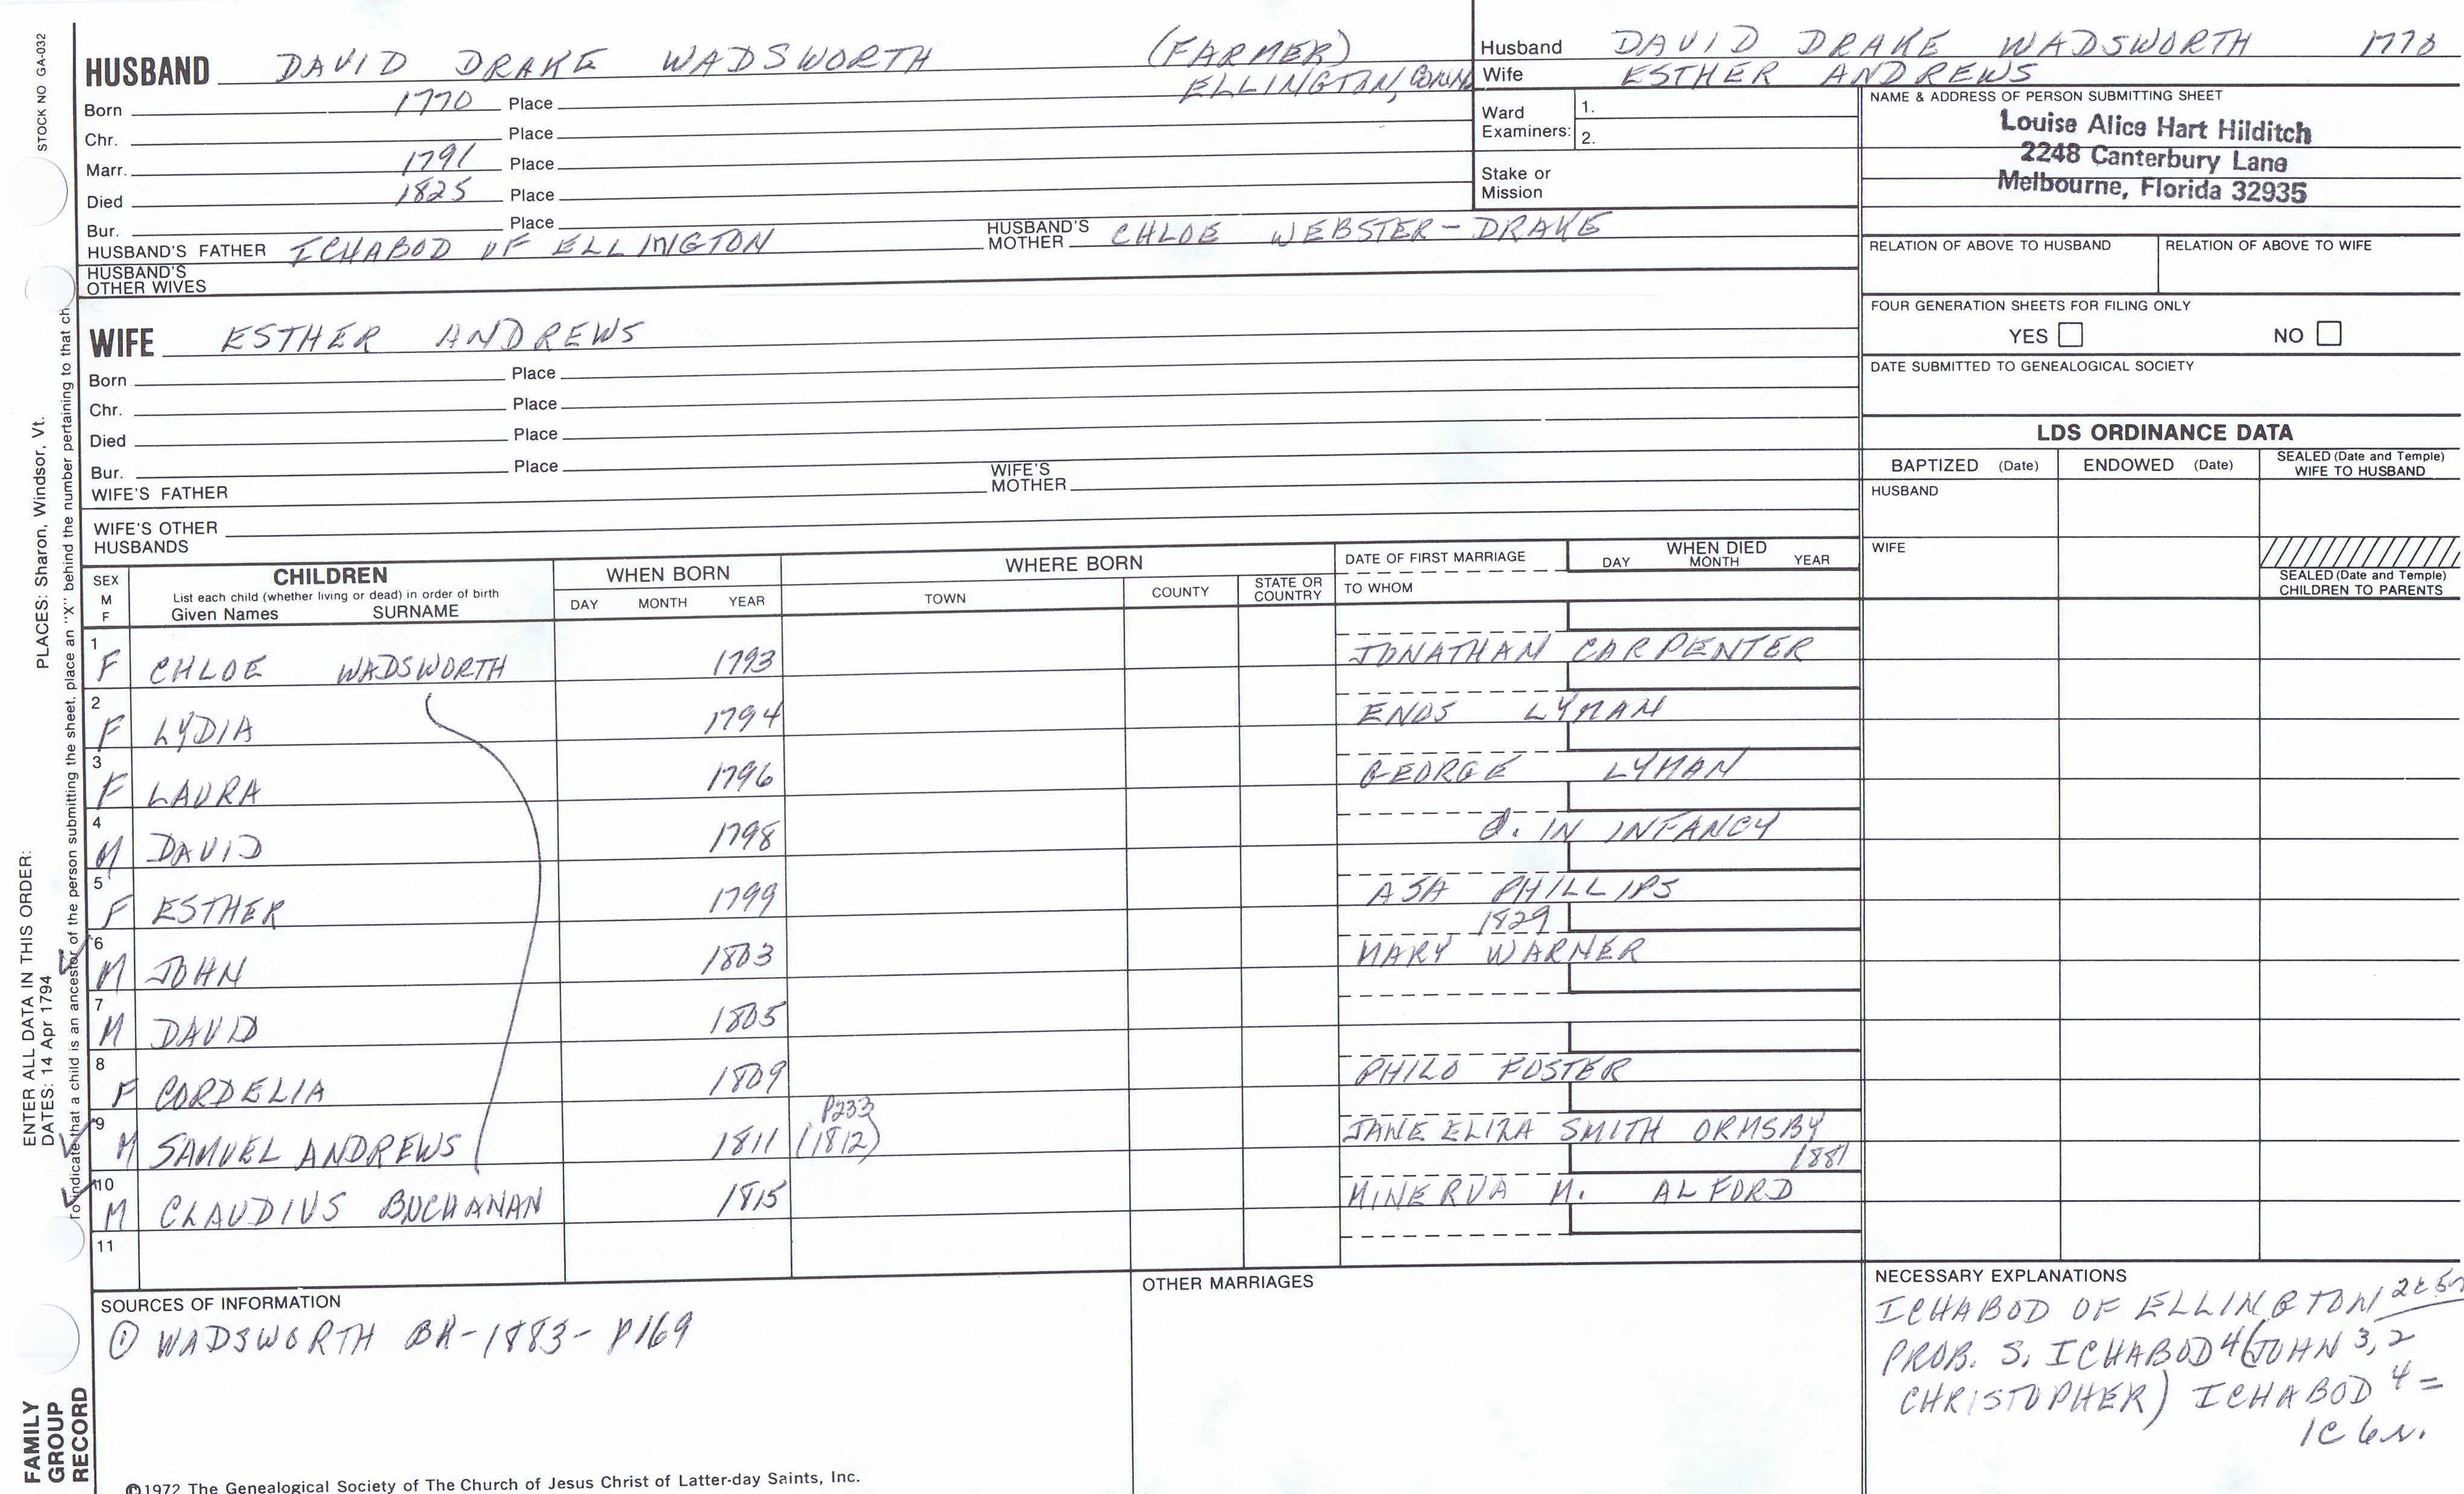 STOCK NO GA-032
HUSBAND DAVID DRAKE WADSWORTH (FARMER)
ELLINGTON, CONN
Born 1770 Place
Chr. Place
Marr. 1791 Place
Died 1825 Place
Bur. Place
HUSBAND'S FATHER ICHABOD OF ELLINGTON HUSBAND'S MOTHER CHLOE WEBSTER-DRAKE
HUSBAND'S OTHER WIVES
WIFE ESTHER ANDREWS
Born Place
Chr. Place
Died Place
Bur. Place
WIFE'S FATHER WIFE'S MOTHER
WIFE'S OTHER HUSBANDS
Husband DAVID DRAKE WADSWORTH 1770
Wife ESTHER ANDREWS
Ward Examiners: 1.
2.
Stake or Mission
NAME & ADDRESS OF PERSON SUBMITTING SHEET
Louise Alice Hart Hilditch
2248 Canterbury Lane
Melbourne, Florida 32935
RELATION OF ABOVE TO HUSBAND RELATION OF ABOVE TO WIFE
FOUR GENERATION SHEETS FOR FILING ONLY
YES NO
DATE SUBMITTED TO GENEALOGICAL SOCIETY
LDS ORDINANCE DATA
BAPTIZED (Date) ENDOWED (Date) SEALED (Date and Temple) WIFE TO HUSBAND
HUSBAND
WIFE
SEALED (Date and Temple) CHILDREN TO PARENTS
SEX M F
CHILDREN
List each child (whether living or dead) in order of birth
Given Names SURNAME
WHEN BORN
DAY MONTH YEAR
WHERE BORN
TOWN COUNTY STATE OR COUNTRY
DATE OF FIRST MARRIAGE
TO WHOM
WHEN DIED
DAY MONTH YEAR
1 F CHLOE WADSWORTH 1793 JONATHAN CARPENTER
2 F LYDIA 1794 ENOS LYMAN
3 F LAURA 1796 GEORGE LYMAN
4 M DAVID 1798 d. IN INFANCY
5 F ESTHER 1799 ASA PHILLIPS
6 M JOHN 1803 1829 MARY WARNER
7 M DAVID 1805
8 F CORDELIA 1809 PHILO FOSTER
9 M SAMUEL ANDREWS 1811 P233 (1812) JANE ELIZA SMITH ORMSBY
10 M CLAUDIUS BUCHANAN 1815 1881 MINERVA M. ALFORD
11
SOURCES OF INFORMATION
① WADSWORTH BK-1883- P169
OTHER MARRIAGES
NECESSARY EXPLANATIONS
ICHABOD OF ELLINGTON 2c5r
PROB. S. ICHABOD 4 (JOHN 3, 2
CHRISTOPHER) ICHABOD 4 =
1C 6r.
©1972 The Genealogical Society of The Church of Jesus Christ of Latter-day Saints, Inc.
ENTER ALL DATA IN THIS ORDER:
DATES: 14 Apr 1794 PLACES: Sharon, Windsor, Vt.
To indicate that a child is an ancestor of the person submitting the sheet, place an "X" behind the number pertaining to that ch
FAMILY
GROUP
RECORD